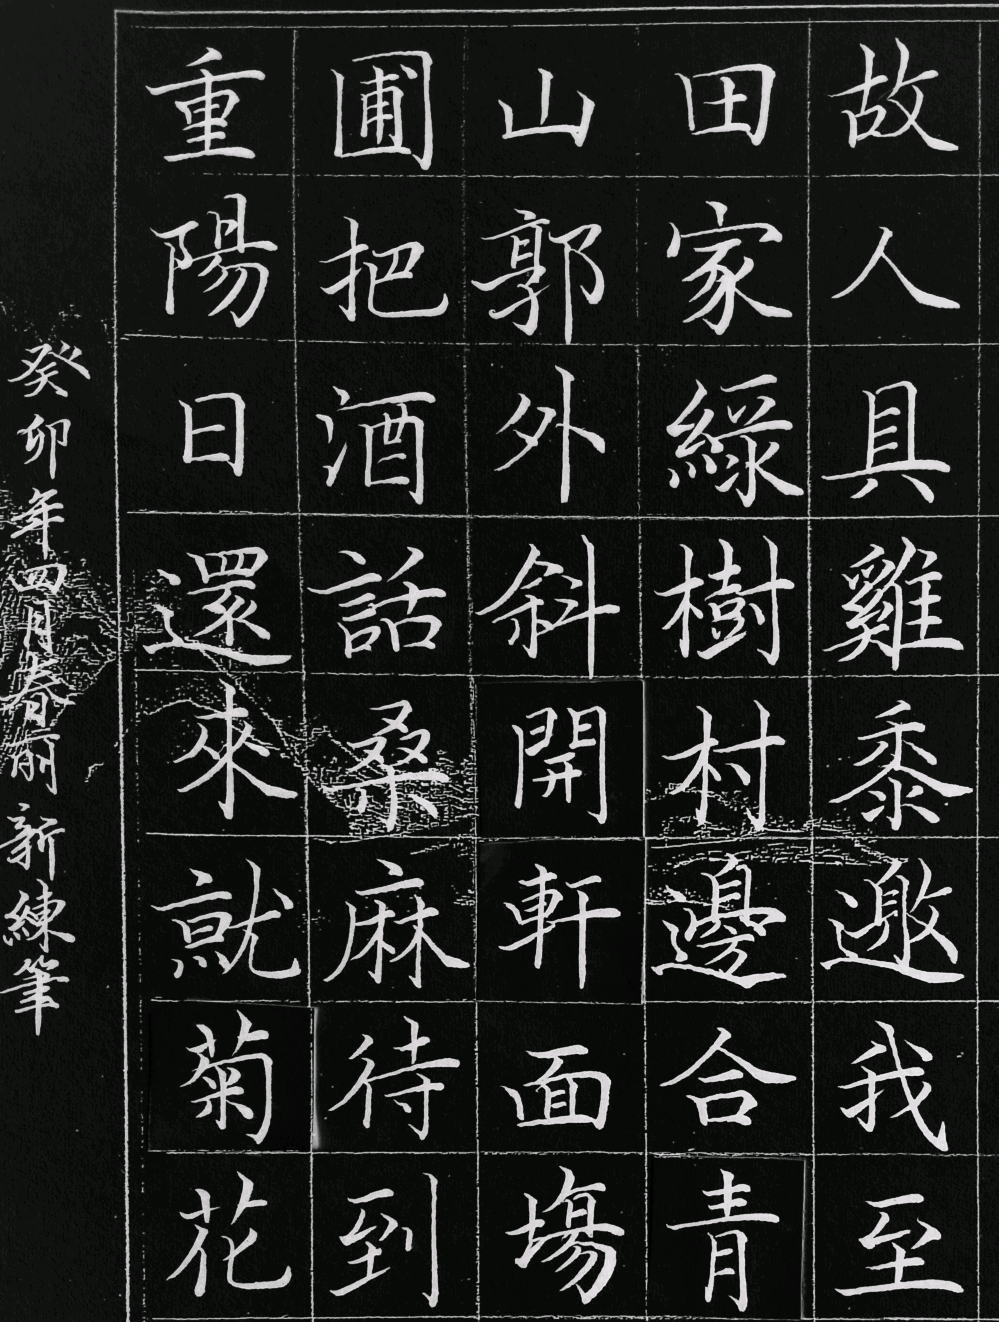 故人具雞黍邀我至
田家綠樹村邊合青
山郭外斜開軒面塲
圃把酒話桑麻待到
重陽日還來就菊花
癸卯年四月春新練筆